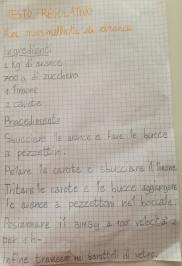 TESTO REGOLATIVO
La marmellata di arance
Ingredienti
1 kg di arance
700 g di zucchero
1 limone
2 carote
Procedimento
Sbucciare le arance e fare le bucce
a pezzettini.
Pelare la carote e sbucciare il limone
Tritare le carote e le bucce aggiungere
le arance a pezzettoni nel boccale.
Posizionare il bimby a 100° velocità 2
per 1 h.
Infine travasare nei barattoli di vetro.